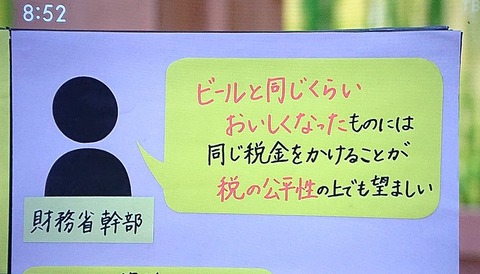 8:52
ビールと同じくらい
おいしくなったものには
同じ税金をかけることが
税の公平性の上でも望ましい
財務省幹部